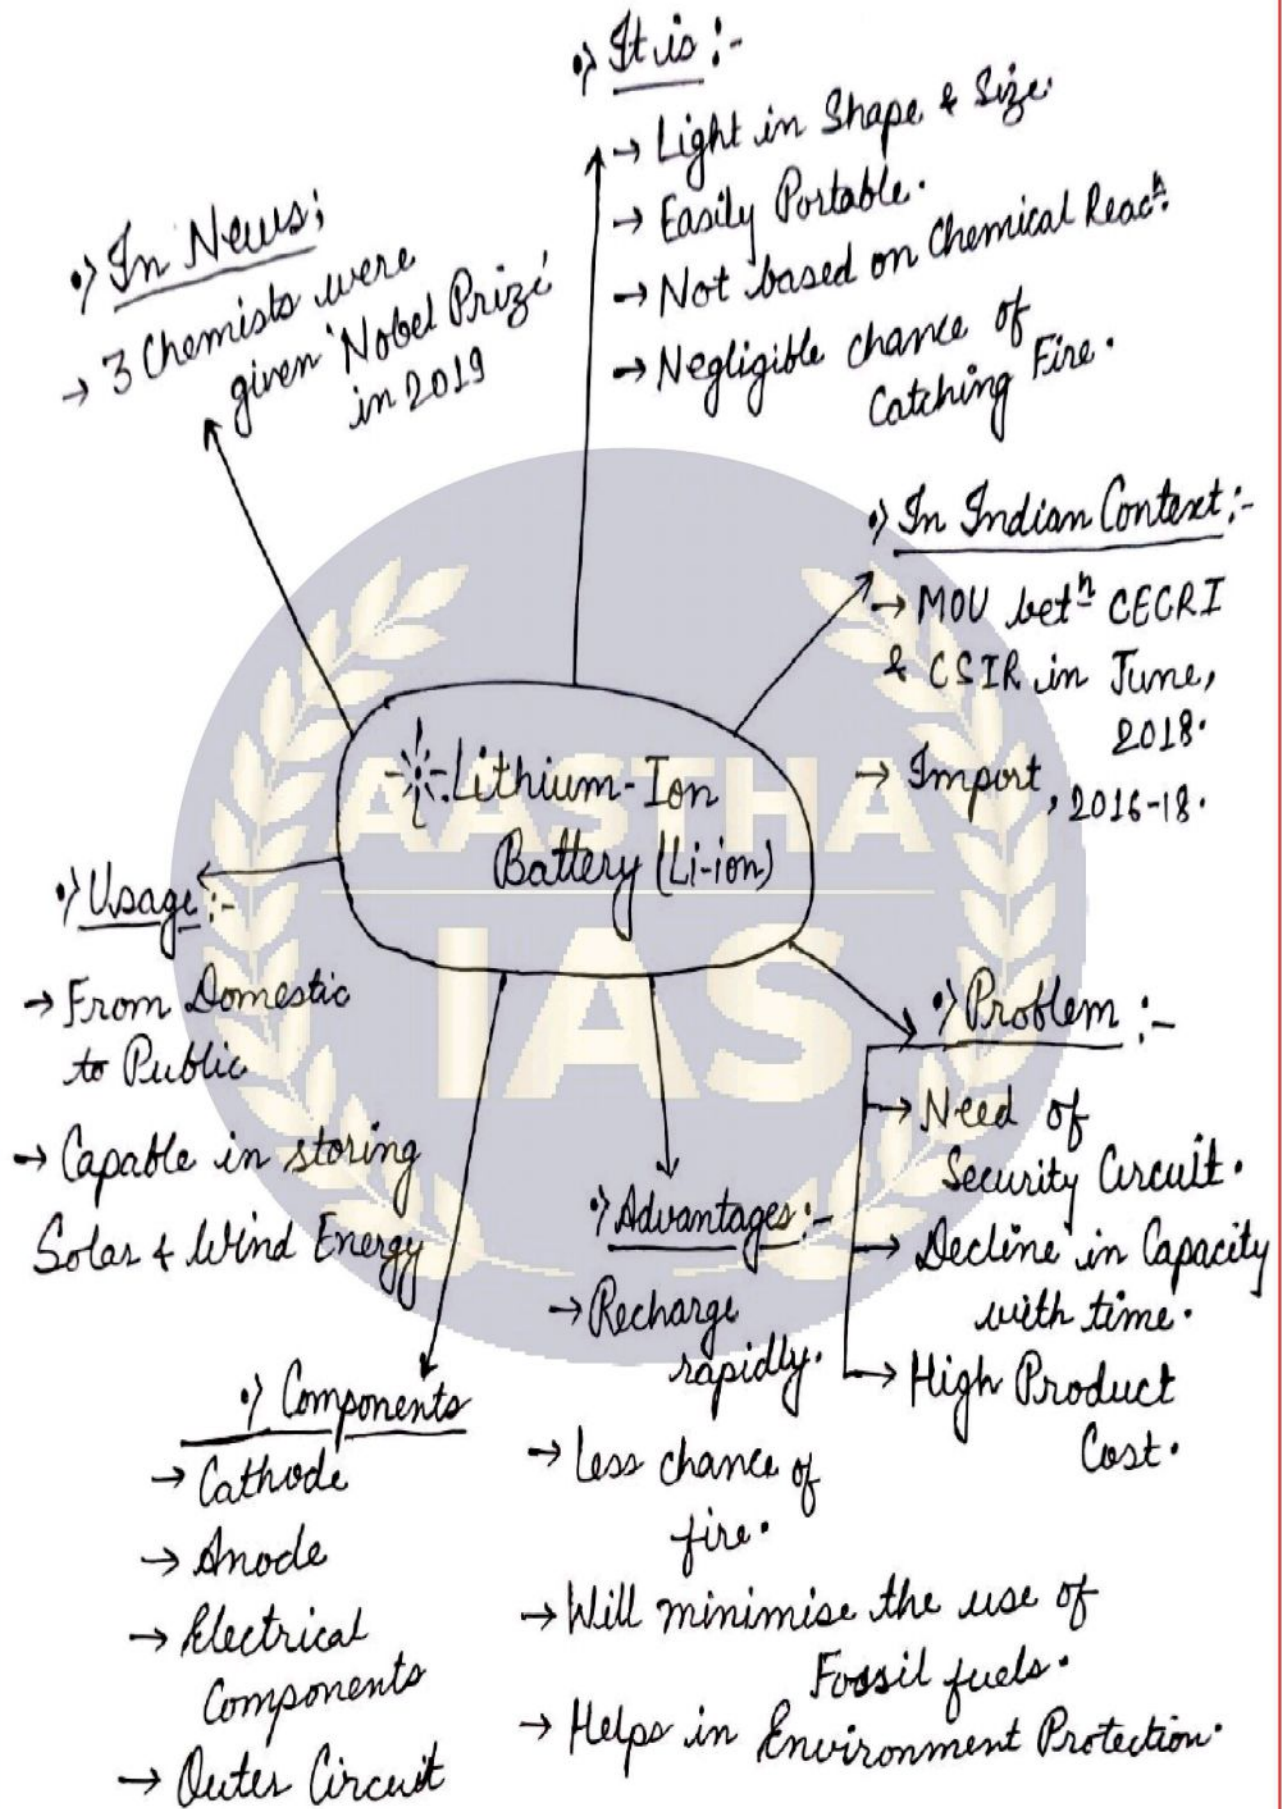 •) It is :-
→ Light in Shape & Size.
→ Easily Portable.
→ Not based on Chemical Reacⁿ.
→ Negligible chance of
Catching Fire.
•) In News;
→ 3 Chemists were
given 'Nobel Prize'
in 2019
•) In Indian Context :-
→ MOU betⁿ CECRI
& CSIR in June,
2018.
→ Import, 2016-18.
Lithium-Ion
Battery (Li-ion)
AASTHA
IAS
•) Usage :-
→ From Domestic
to Public
→ Capable in storing
Solar & Wind Energy
•) Problem :-
→ Need of
Security Circuit.
→ Decline in Capacity
with time.
→ High Product
Cost.
•) Advantages :-
→ Recharge
rapidly.
→ Less chance of
fire.
→ Will minimise the use of
Fossil fuels.
→ Helps in Environment Protection.
•) Components
→ Cathode
→ Anode
→ Electrical
Components
→ Outer Circuit